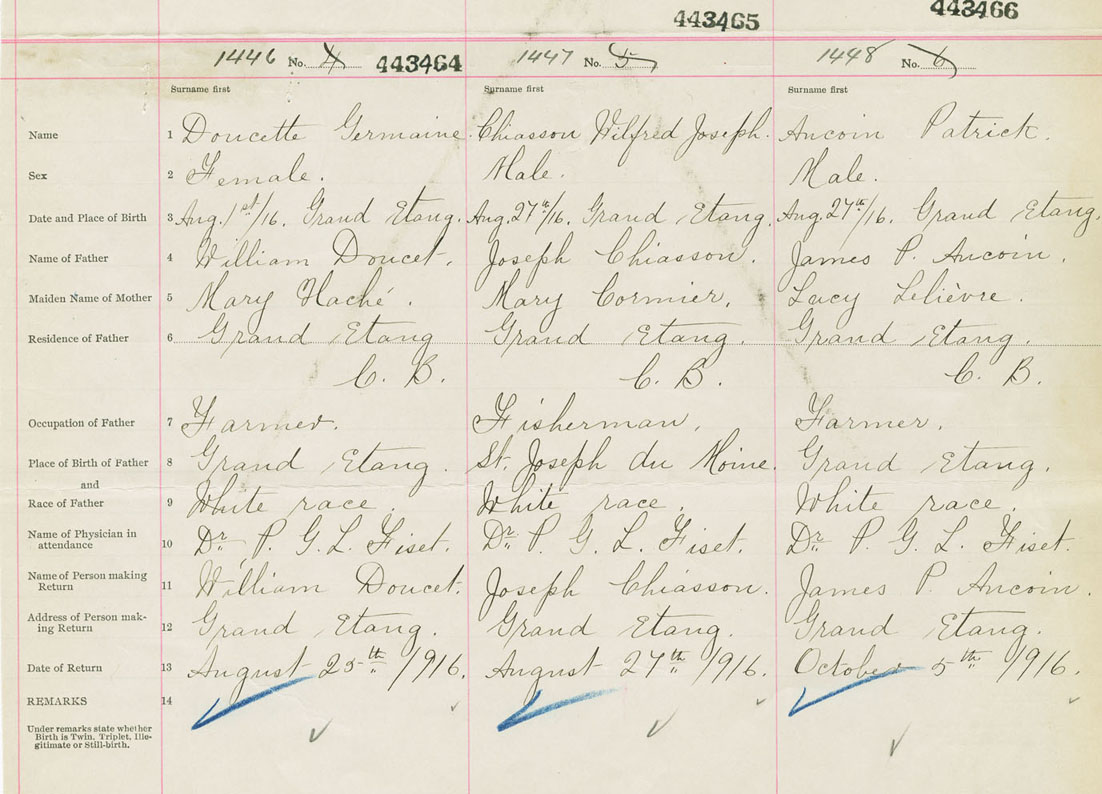 443465 443466
1446 No. 4 443464 1447 No. 5 1448 No. 6
Surname first Surname first Surname first
Name 1 Doucette Germaine. Chiasson Wilfred Joseph. Aucoin Patrick.
Sex 2 Female. Male. Male.
Date and Place of Birth 3 Aug. 1st/16. Grand Etang. Aug. 27th/16. Grand Etang. Aug. 27th/16. Grand Etang.
Name of Father 4 William Doucet. Joseph Chiasson. James P. Aucoin.
Maiden Name of Mother 5 Mary Haché. Mary Cormier. Lucy Lelièvre.
Residence of Father 6 Grand Etang Grand Etang. Grand Etang.
C. B. C. B. C. B.
Occupation of Father 7 Farmer. Fisherman. Farmer.
Place of Birth of Father 8 Grand Etang. St. Joseph du Moine. Grand Etang.
and
Race of Father 9 White race. White race. White race.
Name of Physician in
attendance 10 Dr. P. G. L. Fiset. Dr. P. G. L. Fiset. Dr. P. G. L. Fiset.
Name of Person making
Return 11 William Doucet. Joseph Chiasson. James P. Aucoin.
Address of Person mak-
ing Return 12 Grand Etang. Grand Etang. Grand Etang.
Date of Return 13 August 25th 1916. August 27th 1916. October 5th 1916.
REMARKS 14
Under remarks state whether
Birth is Twin, Triplet, Ille-
gitimate or Still-birth.